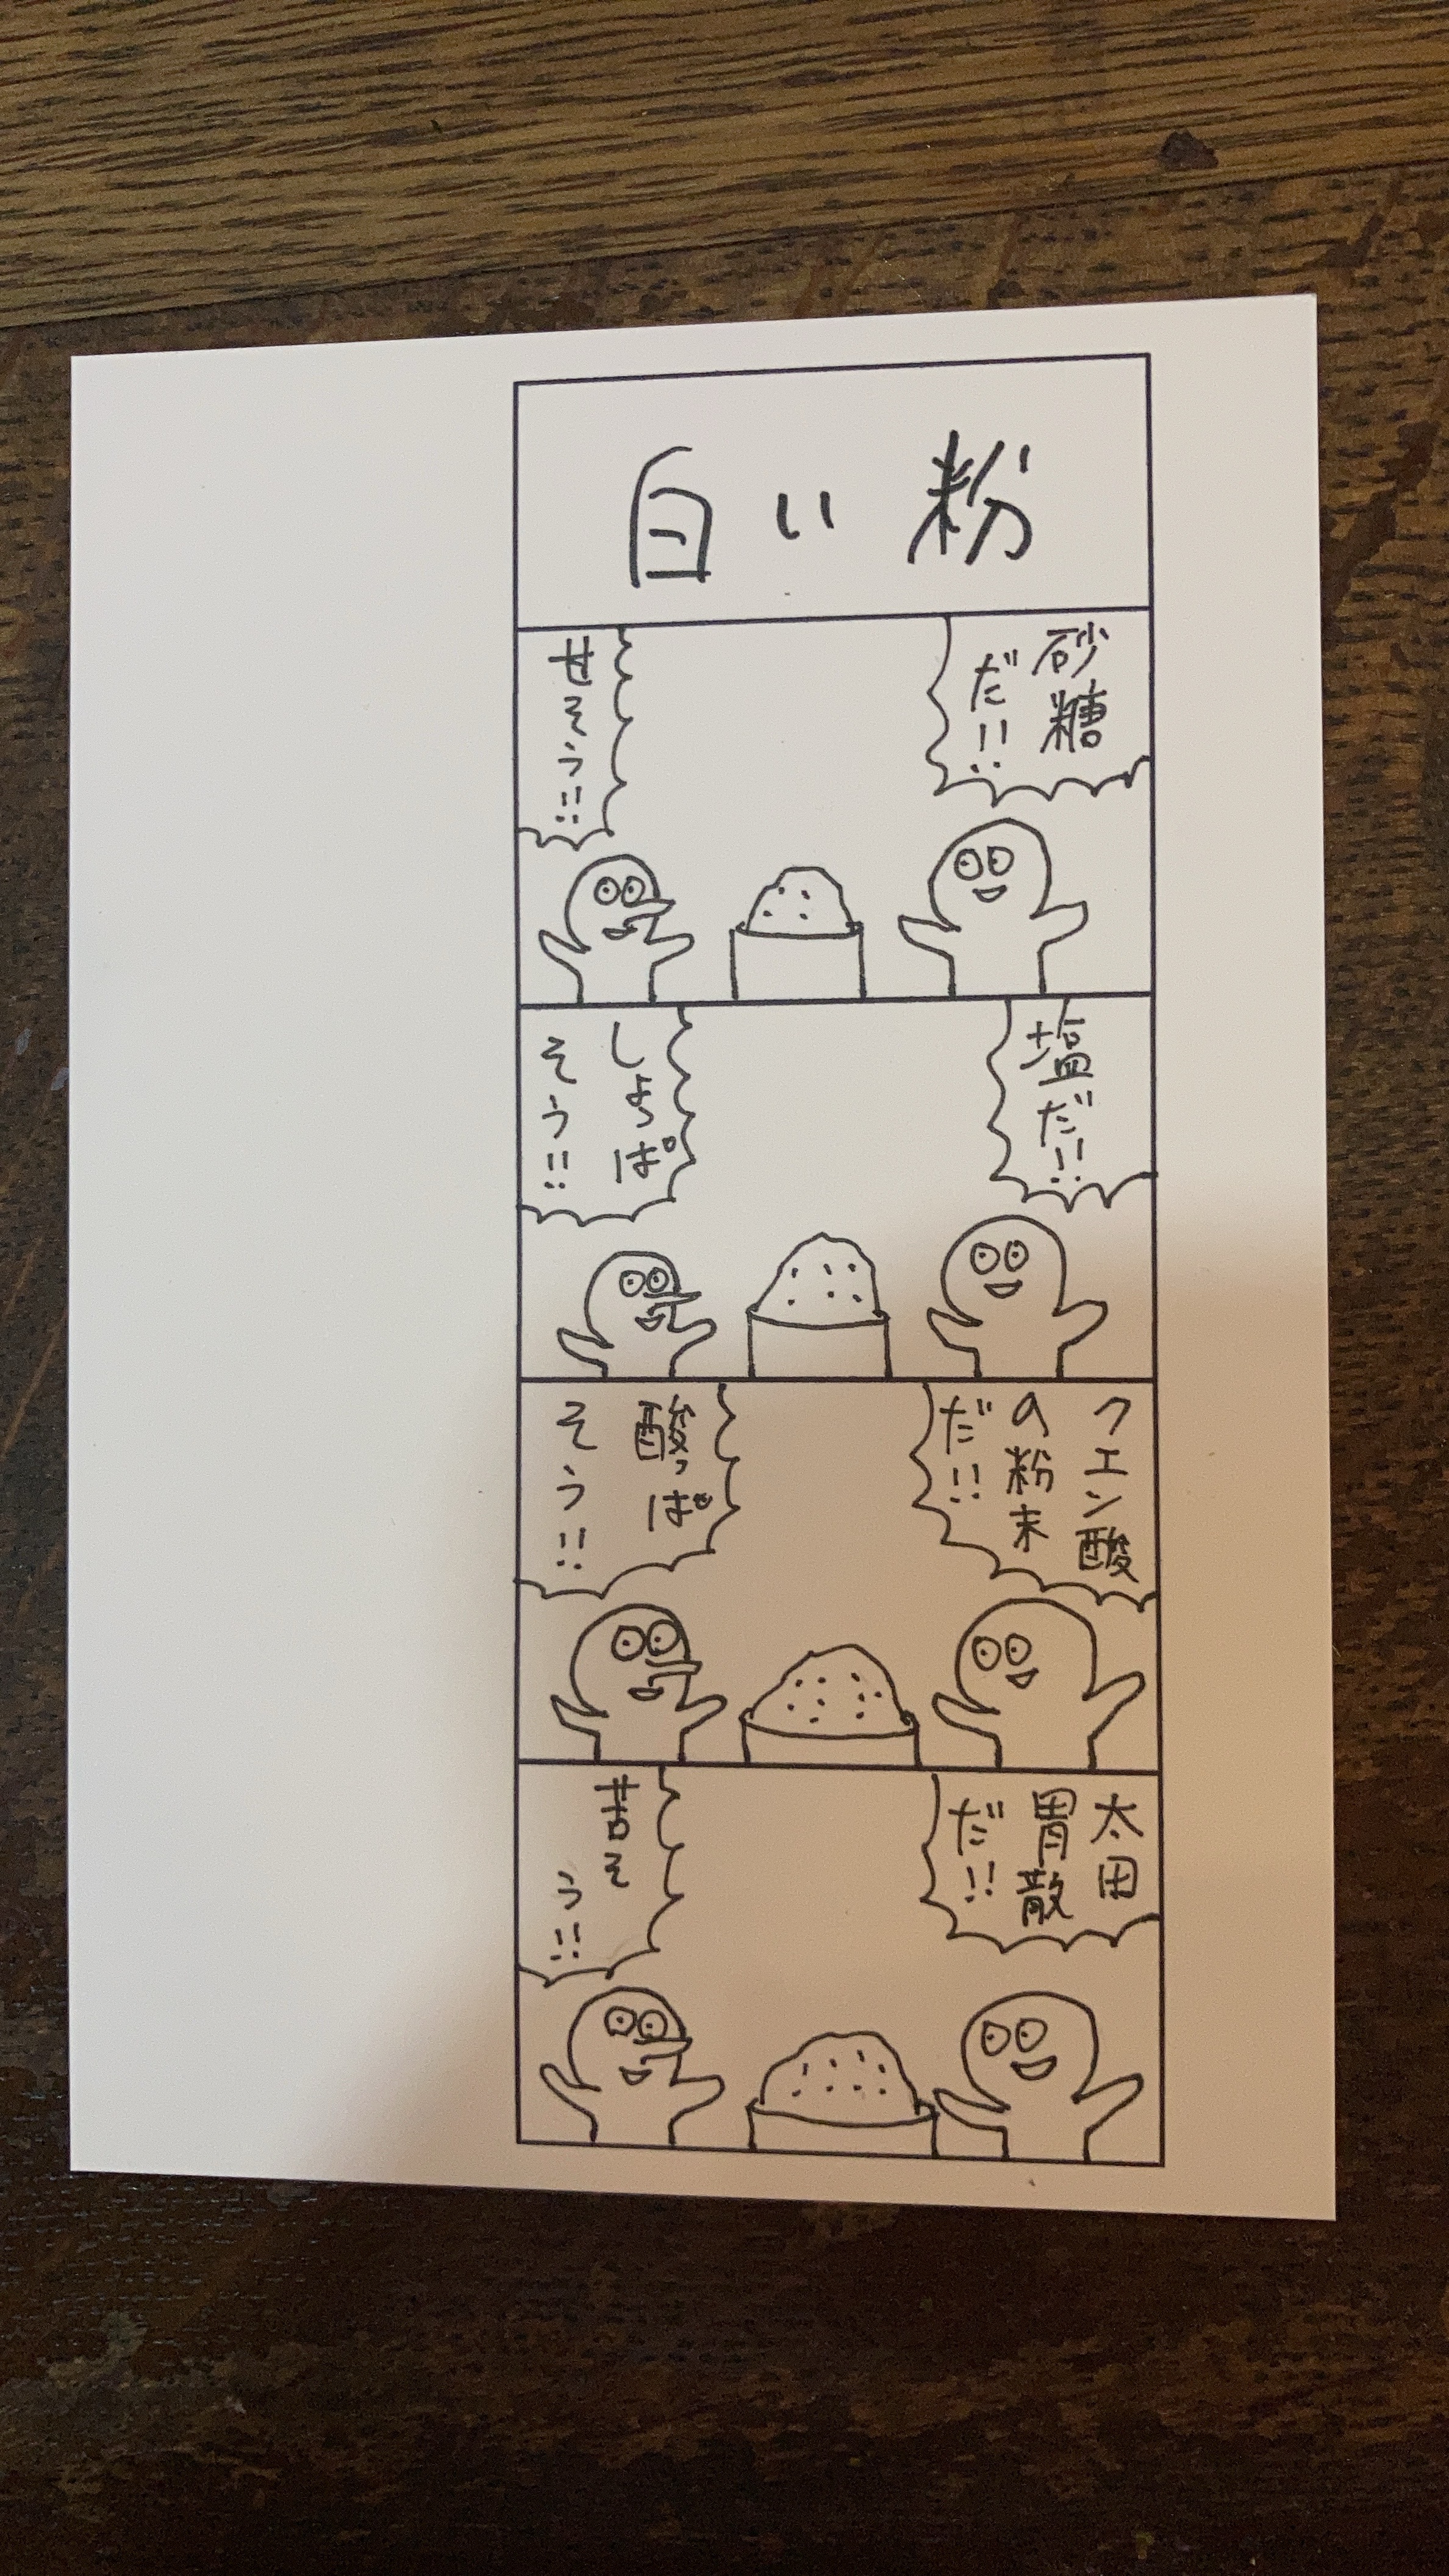 白い粉
砂糖
だ!!
甘そう!!
塩だ!!
しょっぱ
そう!!
クエン酸
の粉末
だ!!
酸っぱ
そう!!
太田
胃散
だ!!
苦そ
う!!